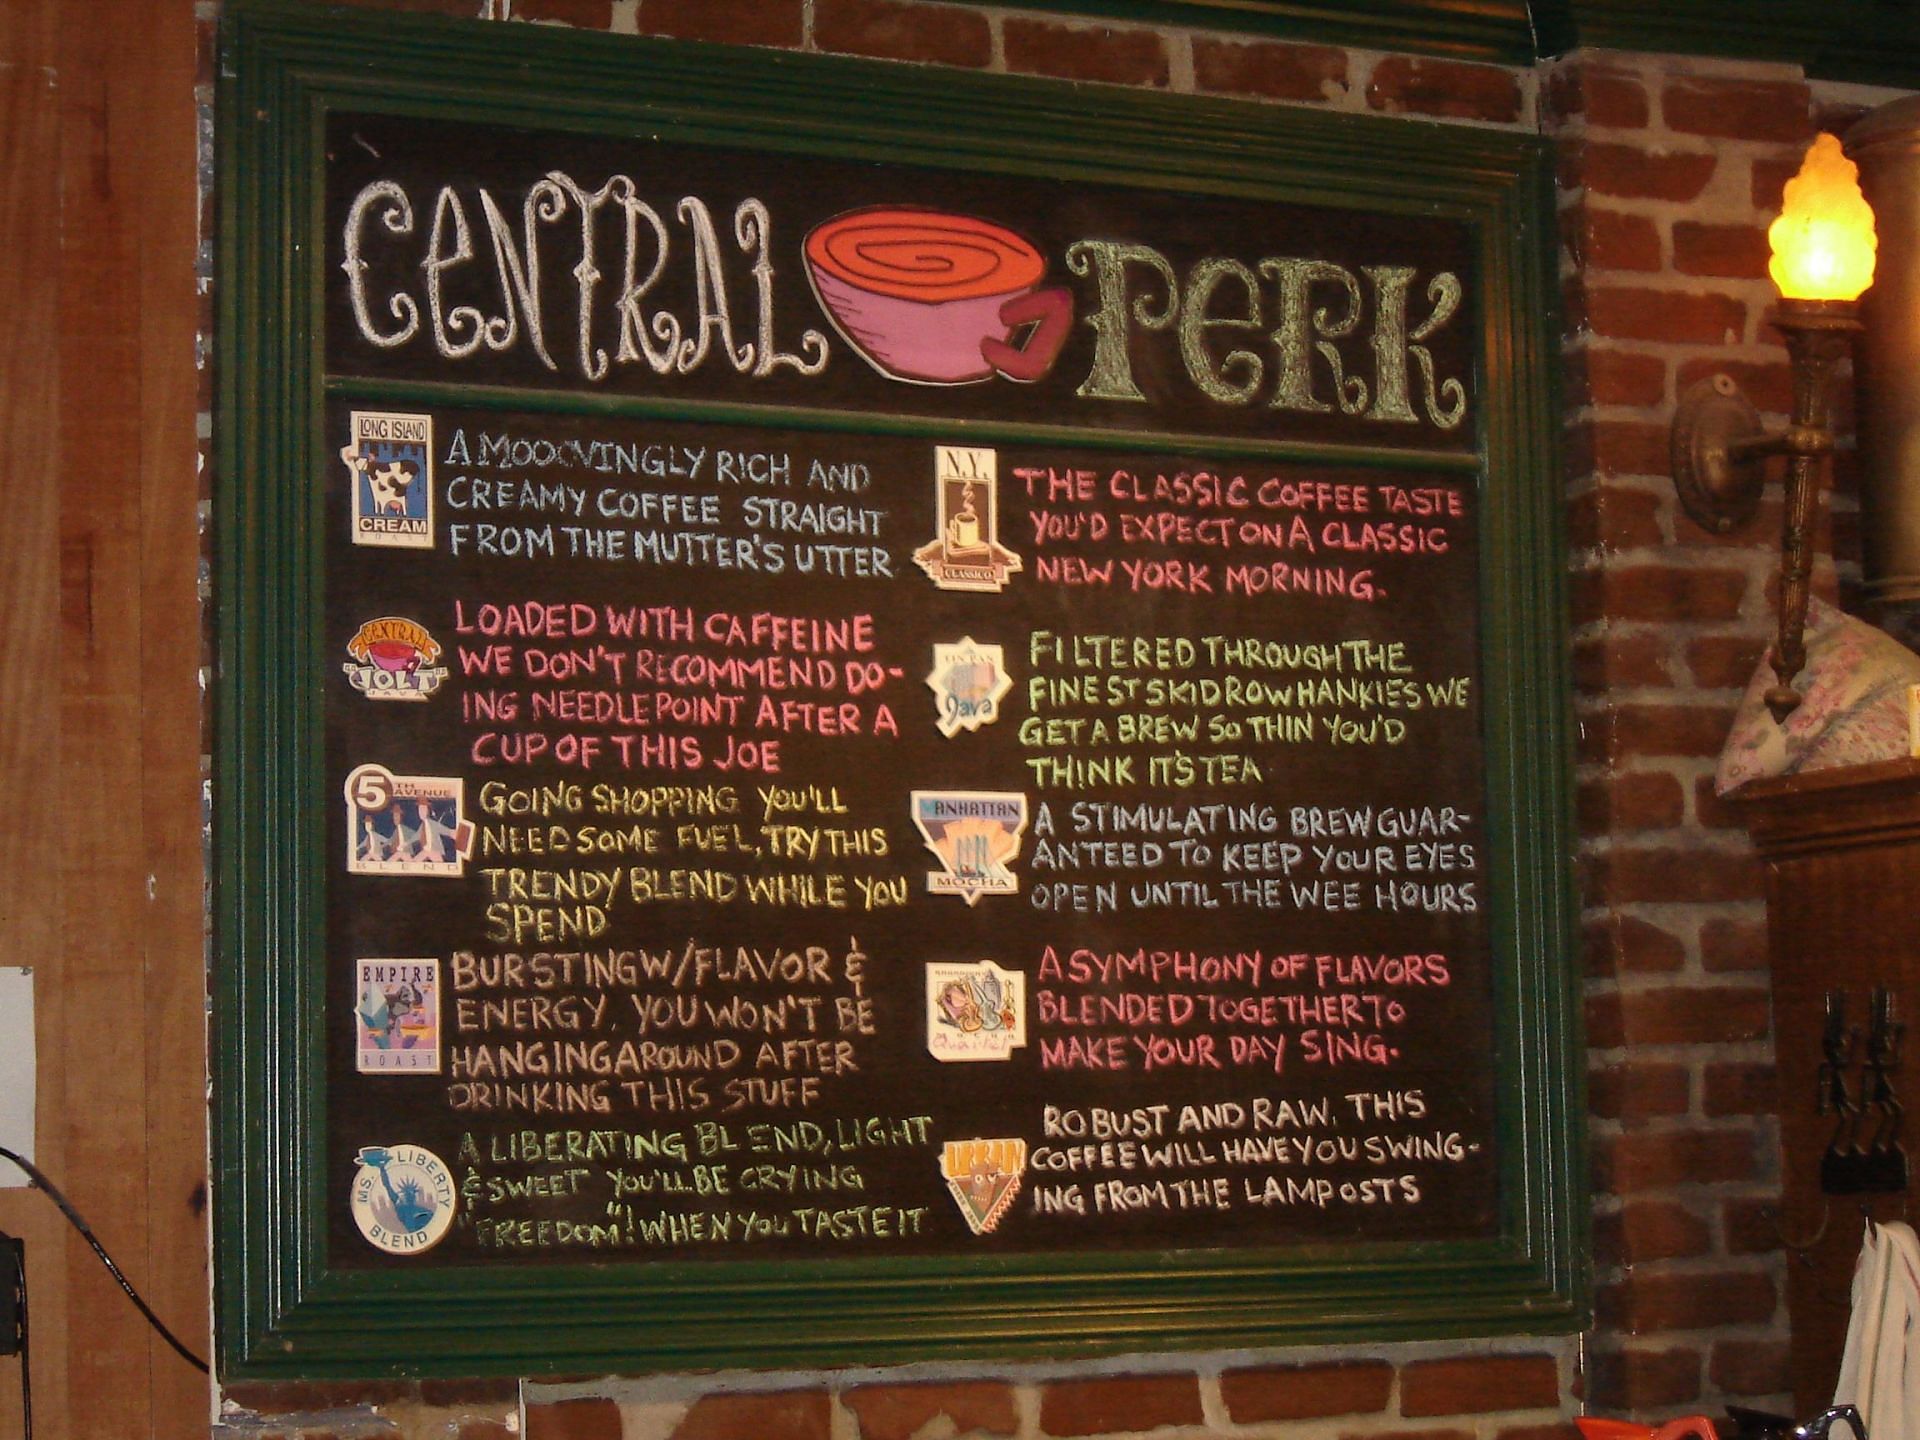 CENTRAL PERK
LONG ISLAND
CREAM
ROAST
A MOOOVINGLY RICH AND
CREAMY COFFEE STRAIGHT
FROM THE MUTTER'S UTTER
CENTRAL
JOLT
JAVA
LOADED WITH CAFFEINE
WE DON'T RECOMMEND DO-
ING NEEDLEPOINT AFTER A
CUP OF THIS JOE
5TH
AVENUE
BLEND
GOING SHOPPING YOU'LL
NEED SOME FUEL, TRY THIS
TRENDY BLEND WHILE YOU
SPEND
EMPIRE
ROAST
BURSTING W/FLAVOR &
ENERGY. YOU WON'T BE
HANGING AROUND AFTER
DRINKING THIS STUFF
MS. LIBERTY
BLEND
A LIBERATING BLEND, LIGHT
& SWEET YOU'LL BE CRYING
"FREEDOM"! WHEN YOU TASTE IT
N.Y.
CLASSICO
THE CLASSIC COFFEE TASTE
YOU'D EXPECT ON A CLASSIC
NEW YORK MORNING.
TIN PAN
Java
FILTERED THROUGH THE
FINEST SKIDROW HANKIES WE
GET A BREW SO THIN YOU'D
THINK IT'S TEA
MANHATTAN
MOCHA
A STIMULATING BREW GUAR-
ANTEED TO KEEP YOUR EYES
OPEN UNTIL THE WEE HOURS
MOCHA
Quartet
A SYMPHONY OF FLAVORS
BLENDED TOGETHER TO
MAKE YOUR DAY SING.
URBAN
ROBUST AND RAW. THIS
COFFEE WILL HAVE YOU SWING-
ING FROM THE LAMPOSTS